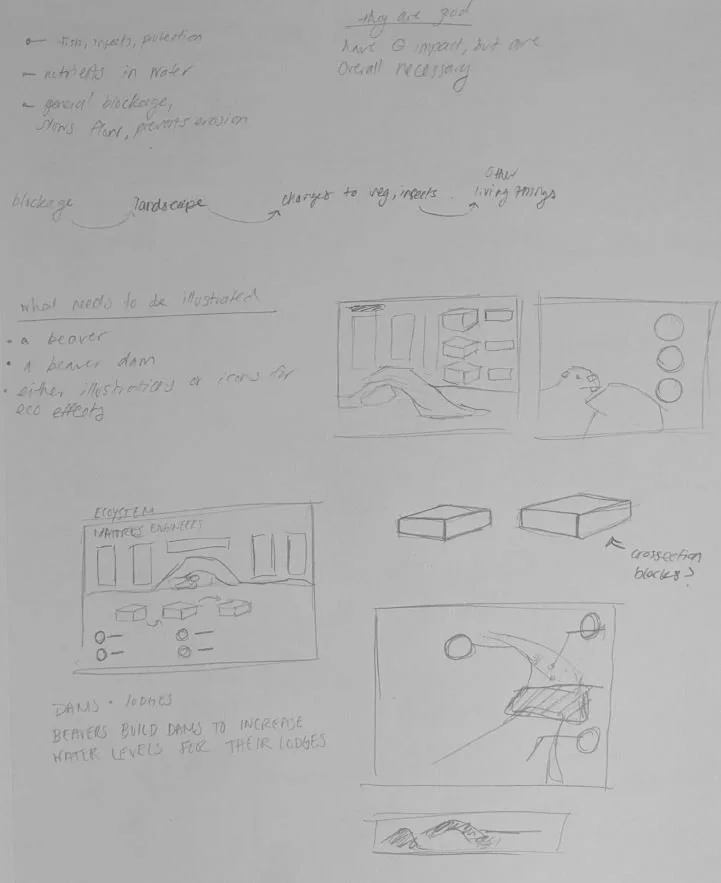 fish, insects, pollution
nutrients in water
general blockage,
slows flow, prevents erosion
they are good
have ⊖ impact, but are
overall necessary
blockage
landscape
changes to veg, insects
other
living things
what needs to be illustrated
• a beaver
• a beaver dam
• either illustrations or icons for
eco effects
ECOSYSTEM
ENGINEERS
crossection
blocks?
DAMS • LODGES
BEAVERS BUILD DAMS TO INCREASE
WATER LEVELS FOR THEIR LODGES